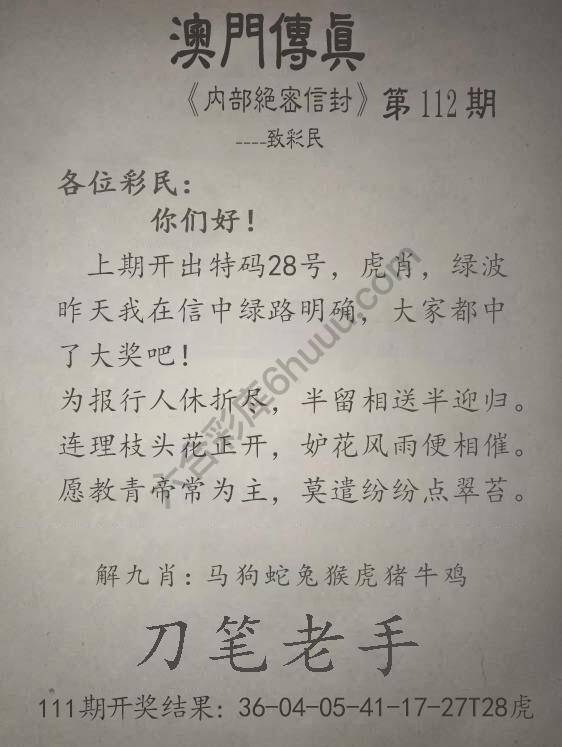 澳門傳眞
《内部絕密信封》第112期
----致彩民
各位彩民：
你们好！
上期开出特码28号，虎肖，绿波
昨天我在信中绿路明确，大家都中
了大奖吧！
为报行人休折尽，半留相送半迎归。
连理枝头花正开，妒花风雨便相催。
愿教青帝常为主，莫遣纷纷点翠苔。
六合彩库6huuu.com
解九肖：马狗蛇兔猴虎猪牛鸡
刀笔老手
111期开奖结果：36-04-05-41-17-27T28虎